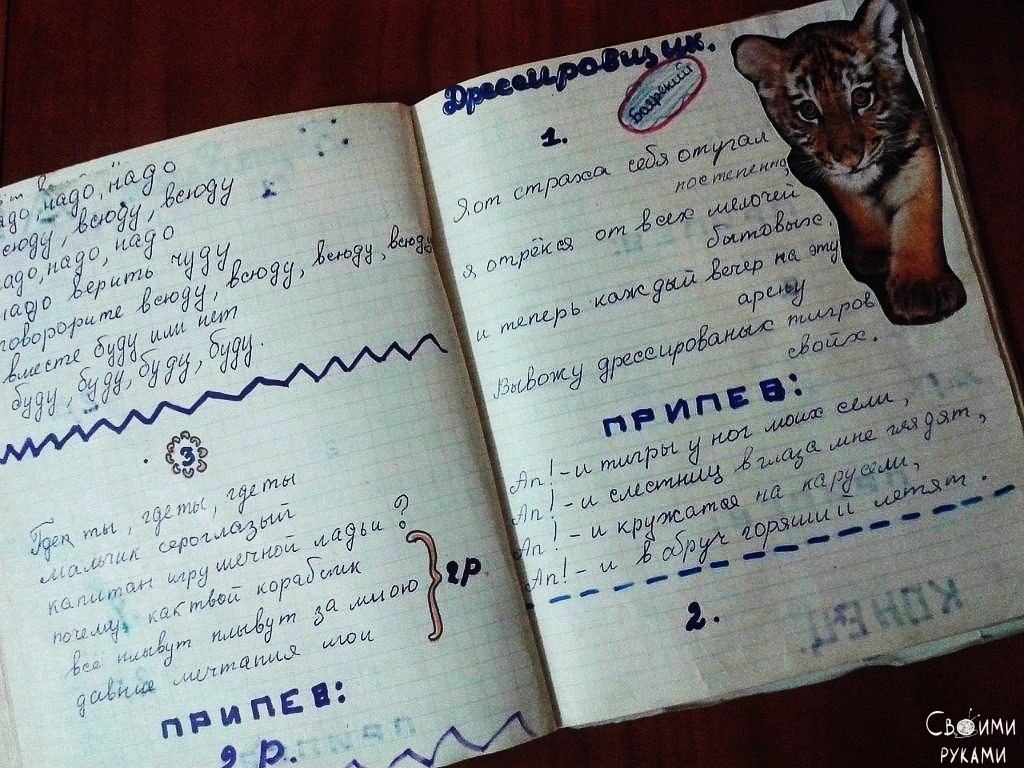 надо, надо
всюду, всюду, всюду
надо, надо, надо
надо верить чуду
говорорите всюду, всюду, всюду, всюду
вместе буду или нет
буду, буду, буду, буду.
3
Где ты, где ты, где ты
мальчик сероглазый
капитан игрушечной ладьи ?
почему, как твой кораблик
всё плывут плывут за мною
давние мечтания мои
2 р.
ПРИПЕВ:
2 р.
Дрессировщик.
Боярский
1.
Я от страха себя отугал
постепенно,
я отрёкся от всех мелочей
бытовых.
и теперь каждый вечер на эту
арену
Вывожу дрессированых тигров
свойх.
ПРИПЕВ:
Ап! - и тигры у ног моих сели,
Ап! - и слестниц в глаза мне глядят,
Ап! - и кружатся на карусели,
Ап! - и в обруч горящий летят.
2.
КОНЕЦ.
Своими
руками